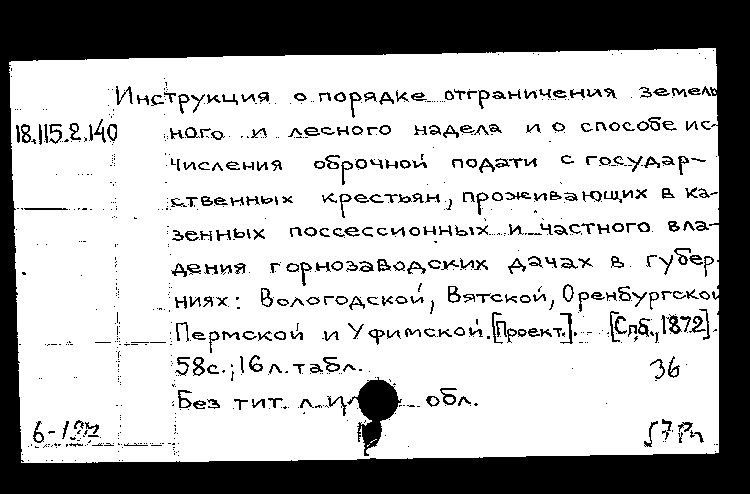 Инструкция о порядке отграничения земель
18.115.2.140 ного и лесного надела и о способе ис-
числения оброчной подати с государ-
ственных крестьян, проживающих в ка-
зенных поссессионных и частного вла-
дения горнозаводских дачах в губер-
ниях: Вологодской, Вятской, Оренбургской
Пермской и Уфимской. [Проект]. [Спб., 1872].
58с.; 16 л. табл. 36
Без тит. л. и обл.